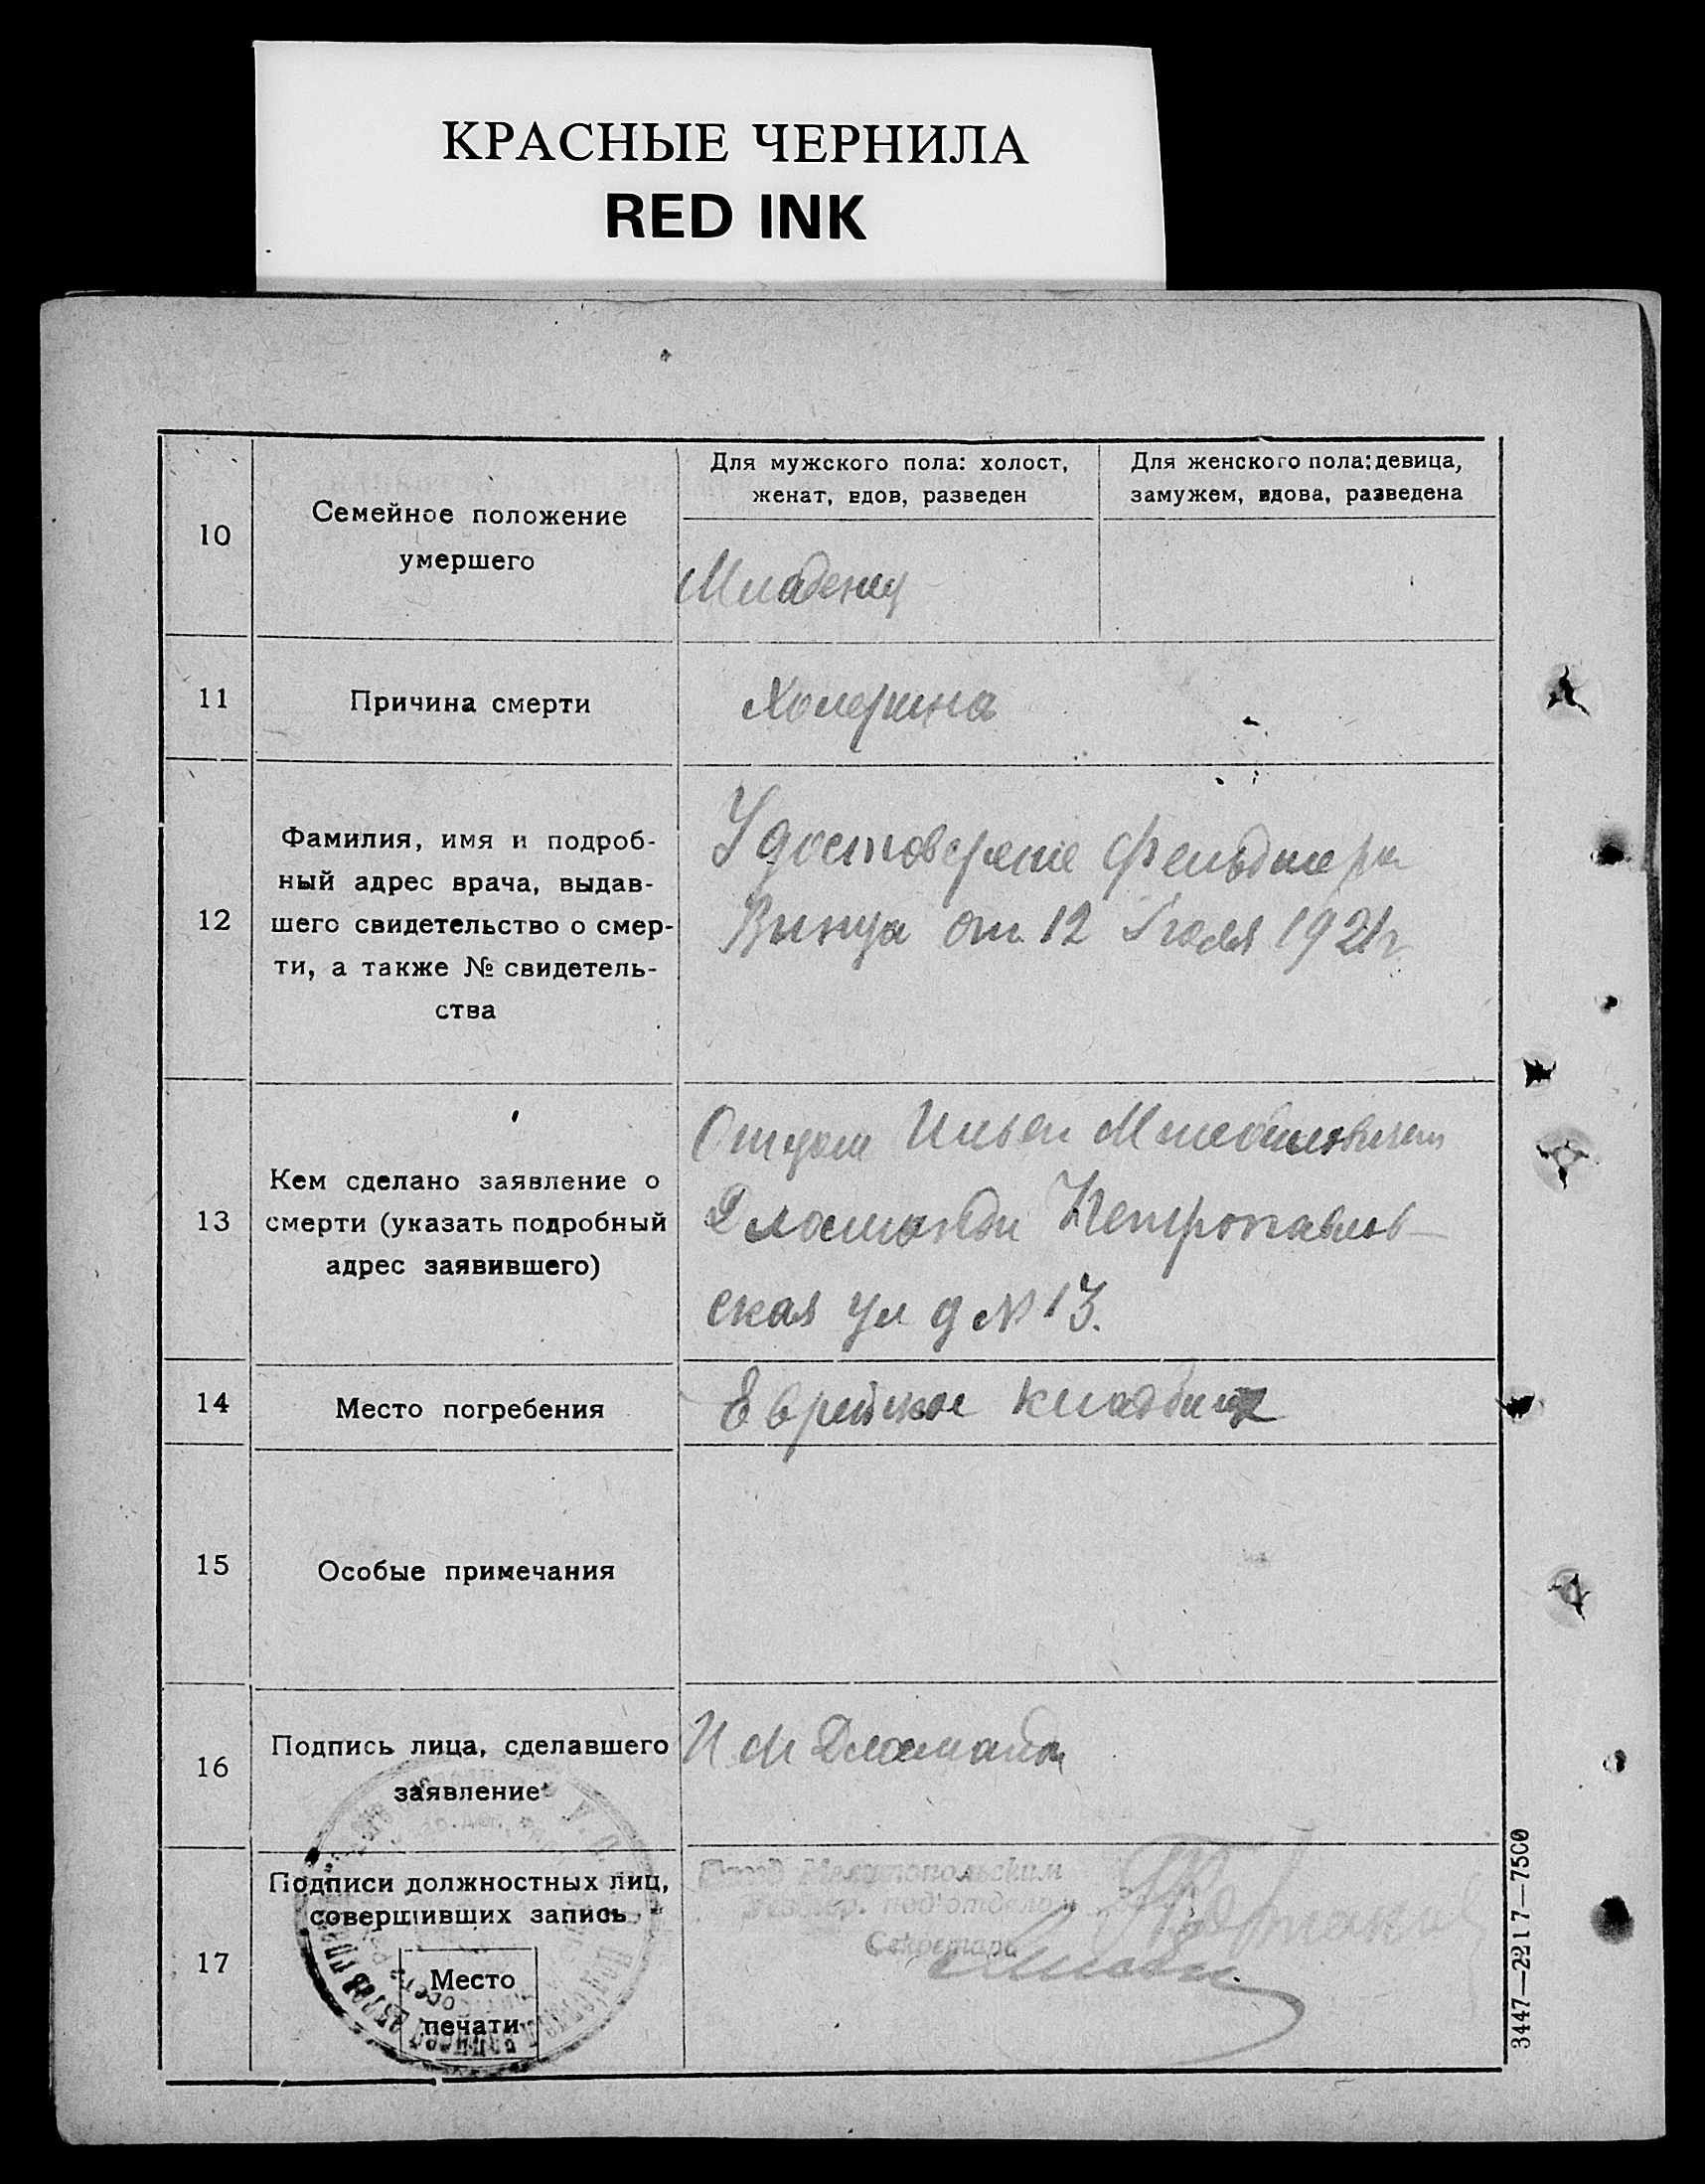 КРАСНЫЕ ЧЕРНИЛА
RED INK
10
Семейное положение
умершего
Для мужского пола: холост,
женат, вдов, разведен
Для женского пола: девица,
замужем, вдова, разведена
Младенец
11
Причина смерти
Холерина
12
Фамилия, имя и подроб-
ный адрес врача, выдав-
шего свидетельство о смер-
ти, а также № свидетель-
ства
Удостоверение фельдшера
от 12 Июля 1921 г.
13
Кем сделано заявление о
смерти (указать подробный
адрес заявившего)
Отцом Ильей
Петропавлов-
ская ул д № 13.
14
Место погребения
Еврейское кладбище
15
Особые примечания
16
Подпись лица, сделавшего
заявление
И М
17
Подписи должностных лиц,
совершивших запись
Место
печати
Мелитопольским
под'отделом
Секретарь
3447—2217—7500